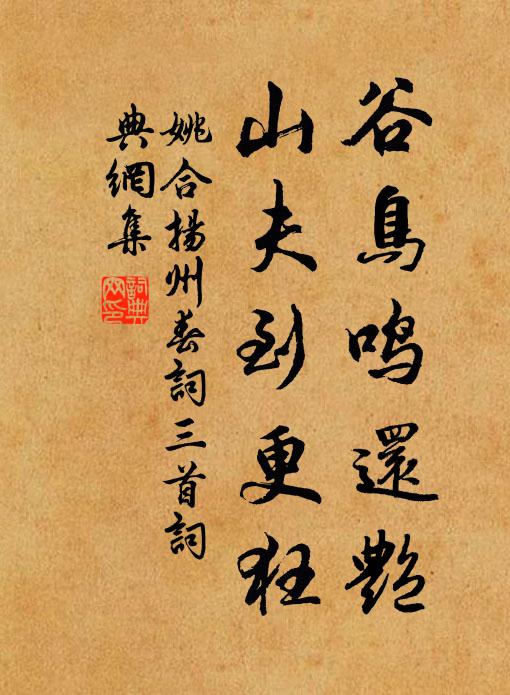 谷鳥鳴還艷
山夫到更狂
姚合揚州春詞三首詞
典網集
詞典
网印